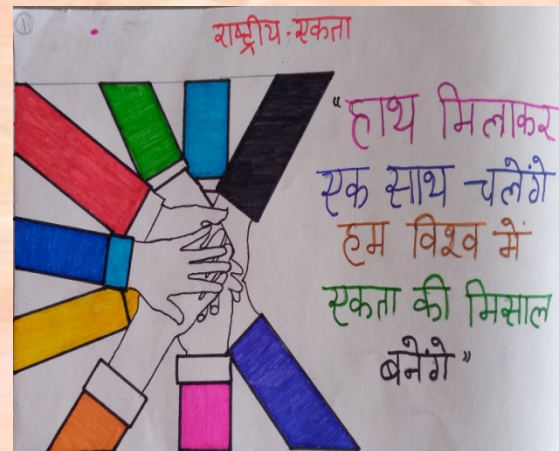 १
राष्ट्रीय-एकता
"हाथ मिलाकर
एक साथ चलेंगे
हम विश्व में
एकता की मिसाल
बनेंगे"